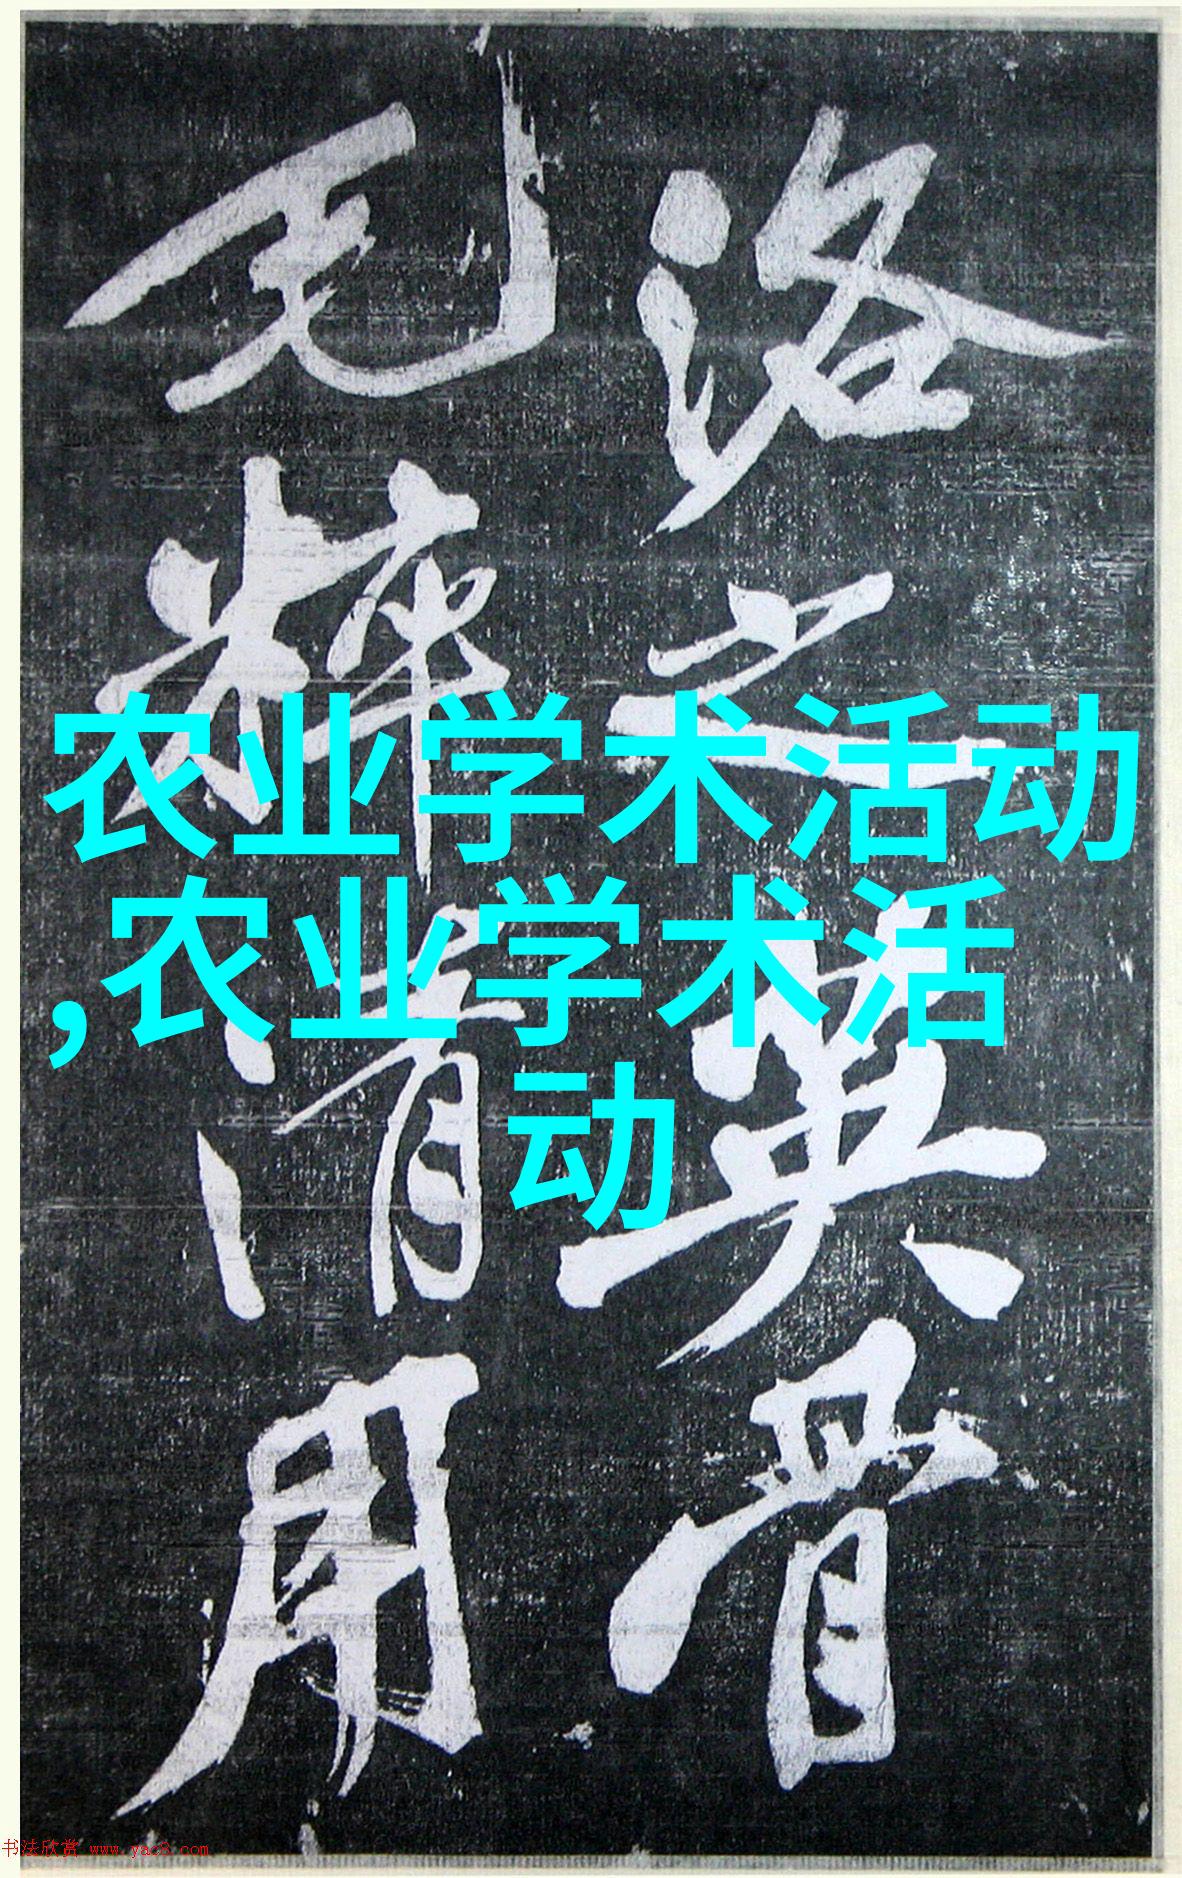 洛之英骨
毛粹清用
农业学术活动
,农业学术活
动
书法欣赏 www.yac8.com